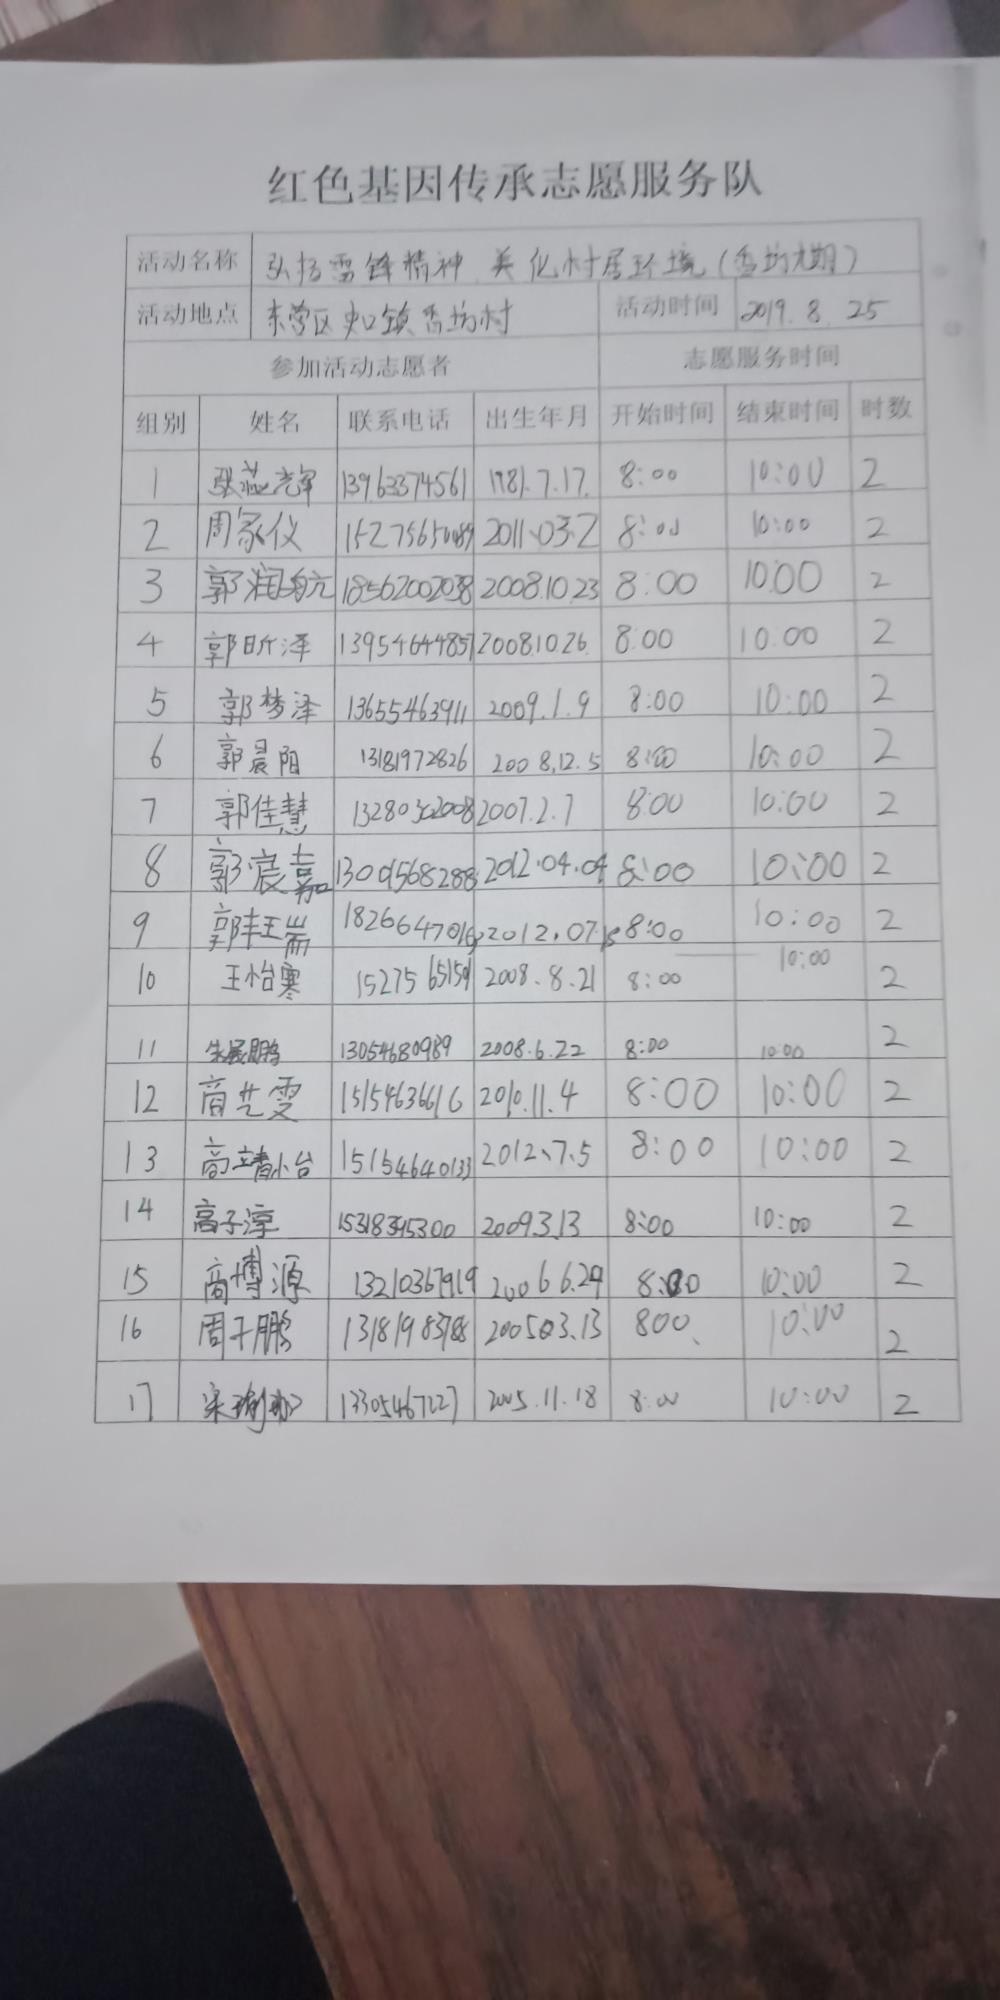 红色基因传承志愿服务队
活动名称 弘扬雷锋精神 美化村居环境(香坊 期)
活动地点 东营区史口镇香坊村 活动时间 2019.8.25
参加活动志愿者 志愿服务时间
组别 姓名 联系电话 出生年月 开始时间 结束时间 时数
1 13963374561 1981.7.17. 8:00 10:00 2
2 周家仪 2011.03.2 8:00 10:00 2
3 郭润 18562002038 2008.10.23 8:00 10:00 2
4 郭昕泽 13954644857 2008.10.26. 8:00 10:00 2
5 郭梦泽 13655463911 2009.1.9 8:00 10:00 2
6 郭晨阳 13181972826 2008.12.5 8:00 10:00 2
7 郭佳慧 13280302008 2007.2.7 8:00 10:00 2
8 郭宸嘉 13001568288 2012.04.04 8:00 10:00 2
9 郭 2012.07.18 8:00 10:00 2
10 王怡寒 2008.8.21 8:00 10:00 2
11 朱展鹏 13054680989 2008.6.22 8:00 10:00 2
12 商艺雯 15154636616 2010.11.4 8:00 10:00 2
13 15154640133 2012、7.5 8:00 10:00 2
14 高子淳 15318345300 2009.3.13 8:00 10:00 2
15 商博源 13210367919 2006 6.29 8:00 10:00 2
16 周于鹏 13181983788 200503.13 800、 10:00 2
17 13305467227 2005.11.18 8:00 10:00 2